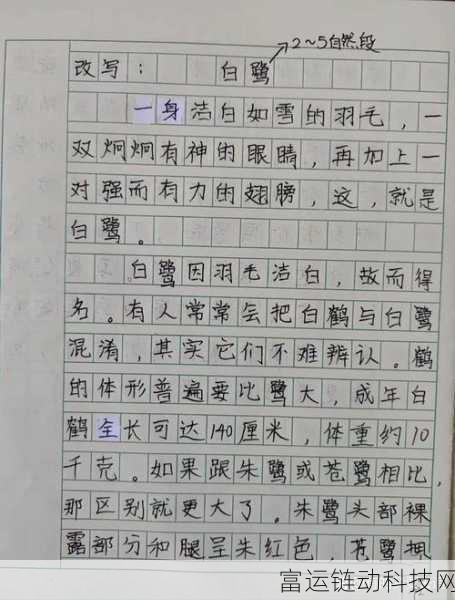 2~5自然段
改写： 白鹭
一身洁白如雪的羽毛，一
双炯炯有神的眼睛，再加上一
对强而有力的翅膀，这，就是
白鹭。
白鹭因羽毛洁白，故而得
名。有人常常会把白鹤与白鹭
混淆，其实它们不难辨认。鹤
的体形普遍要比鹭大，成年白
鹤全长可达140厘米，体重约10
千克。如果跟朱鹭或苍鹭相比，
那区别就更大了。朱鹭头部裸
露部分和腿呈朱红色，苍鹭拥
富运链动科技网